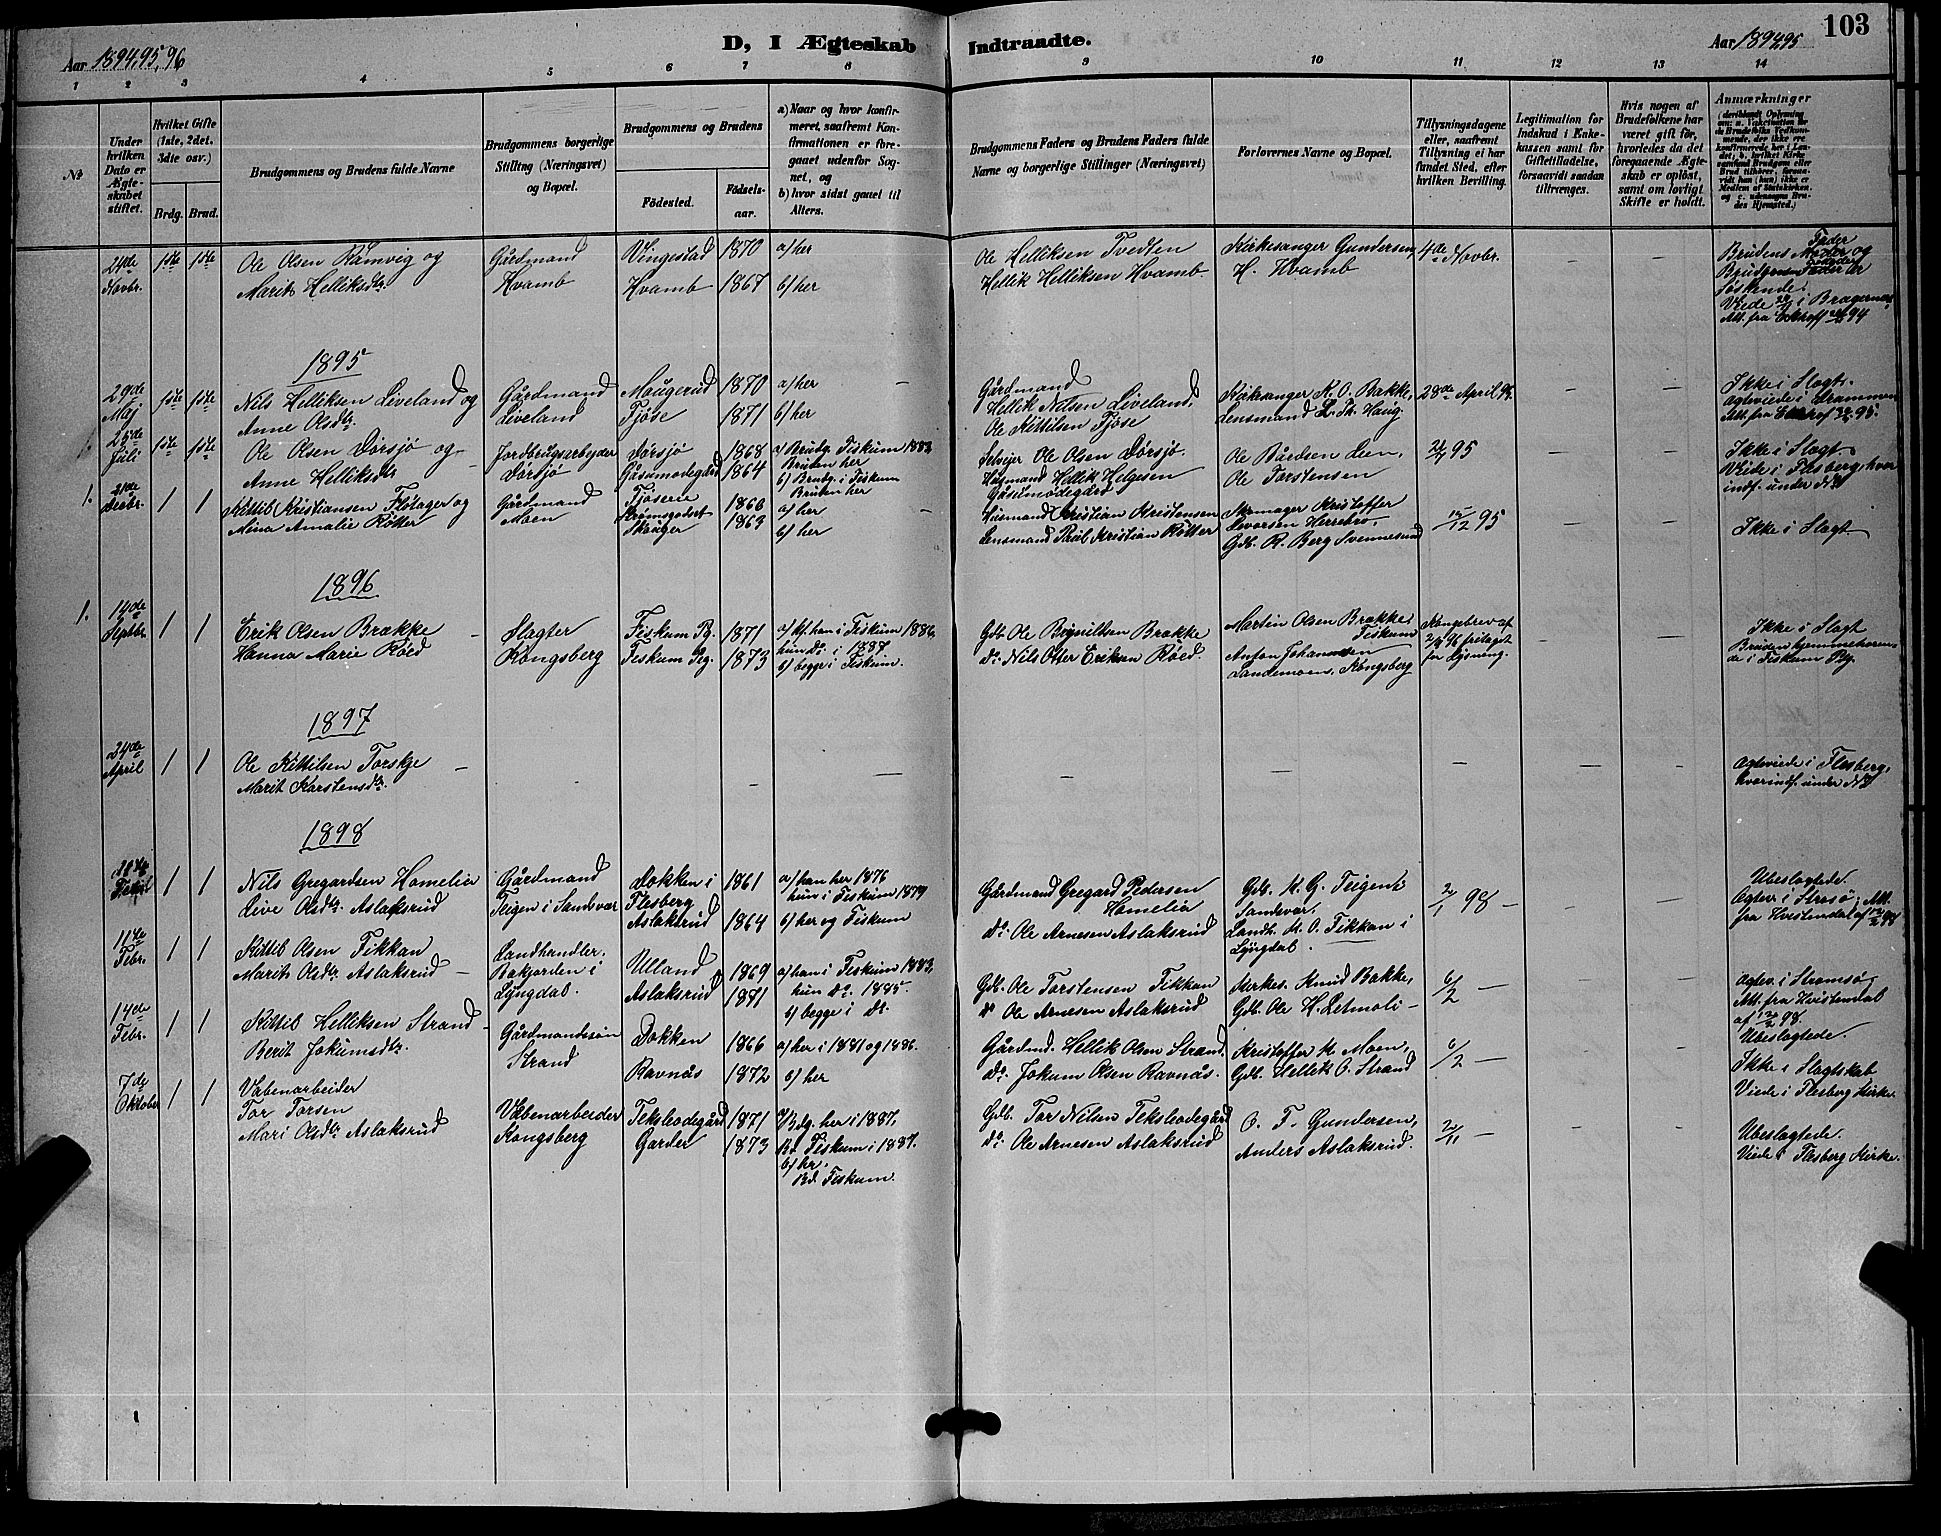 103
Aar 1894,95,96
D, I Ægteskab Indtraadte.
Aar 1894,95
1 2 3 4 5 6 7 8 9 10 11 12 13 14
No
Under hvilken Dato er Ægteskabet stiftet.
Hvilket Gifte (1ste, 2det, 3die osv.)
Brdg. Brud.
Brudgommens og Brudens fulde Navne
Brudgommens borgerlige Stilling (Næringsvei) og Bopæl.
Brudgommens og Brudens
Fødested.
Fødselsaar.
a) Naar og hvor konfirmeret, saafremt Konfirmationen er foregaaet udenfor Sognet, og
b) hvor sidst gaaet til Alters.
Brudgommens Faders og Brudens Faders fulde Navne og borgerlige Stillinger (Næringsvei)
Forlovernes Navne og Bopæl.
Tillysningsdagene eller, saafremt Tillysning ei har fundet Sted, efter hvilken Bevilling.
Legitimation for Indskud i Enkekassen samt for Giftetilladelse, forsaavidt saadan tiltrænges.
Hvis nogen af Brudefolkene har været gift før, hvorledes da det foregaaende Ægteskab er opløst, samt om lovligt Skifte er holdt.
Anmærkninger
24de Novbr. 1ste 1ste
Ole Olsen Ramvig og
Marit Helliksdtr.
Gårdmand
Hvamb
Vingestad 1870 a) her
Hvamb 1867 b) her
Ole Helliksen Tvedten
Hellik Helliksen Hvamb
Kirkesanger Gundersen
H. Hvamb
4de Novbr.
Brudens Fader og
Søskende.
Viede i Bragernæs
1895
29de Maj 1ste 1ste
Nils Helliksen Liveland og
Anne Olsdtr.
Gårdmand
Liveland
Maugerud 1870 a) her
Fjøse 1871 b) her
Gårdmand
Hellik Nilsen Liveland,
Ole Kittilsen Fjøse
Kirkesanger K. O. Bakke,
Lensmand L. Th. Haug
28de April
Ikke i Slagt.
Agteviede i Drammen
25de Juli 1ste 1ste
Ole Olsen Dørsjø og
Anne Helliksdtr
Jordbrugsarbejder
Dørsjø
Dørsjø 1868
Gåsumødegård 1864
a) Brudg. Fiskum 1883
Bruden her
b) Brudg. i Fiskum
Bruden her
Selvejer Ole Olsen Dørsjø.
Husmand Hellik Helgesen
Gåsumødegård
Ole Bårdsen Leen,
Ole Torstensen
95
Ikke i Slagt
Viede i Flesberg, hvor
indf. under No
1. 21de Decbr. 1 1
Kittil Kristiansen Fløtager og
Mina Amalie Røtter
Gårdmand
Moen
Fjøserne 1860 a) her
Strømsgodset
Skoger 1863 b) her
Husmand Kristian Kristensen
Lensmand Paul Kristian Røtter
Skomager Kristoffer
Svennesund
15/12 95
Ikke i Slagt
1896
1. 14de Septbr. 1 1
Erik Olsen Brække
Hanna Marie Røed
Slagter
Kongsberg
Fiskum Pg. 1871
Fiskum Pg. 1873
a) Kf. han i Fiskum 1886,
hun do. i 1887
b) begge i Fiskum.
Gdb. Ole Bøgnildsen Brække
do. Nils Otter Eriksen Røed.
Martin Olsen Brække,
Fiskum
Anton Johannesen
Landemoen, Kongsberg
Kongebrev af
fritaget
for Lysning.
Ikke i Slagt
Bruden hjemmehørende i Fiskum Pg.
1897
24de April 1 1
Ole Kittilsen Torskje
Marit Karstensdtr.
Agteviede i Flesberg,
hvor indf. under No
1898
1 1
Nils Gregardsen Homelia
Live Olsdtr. Aslaksrud
Gårdmand
Teigen i Sandsvær
Dokken i
Flesberg 1861
Aslaksrud 1864
a) han her 1876
hun i Fiskum 1879
b) her og Fiskum
Gårdmand Gregard Pedersen
Homelia
do. Ole Arnesen Aslaksrud
Gdb. K. G. Teigen i
Sandsvær.
Landh. K. O. Fikkan i
Lyngdal.
2/1 98
Ubeslægtede.
11te Febr. 1 1
Kittil Olsen Fikkan
Marit Olsdtr. Aslaksrud
Landhandler.
Bakjorden i
Lyngdal.
Ulland 1869
Aslaksrud 1871
a) han i Fiskum 1883,
hun do. 1885.
b) begge i do.
Gdb. Ole Torstensen Fikkan
do Ole Arnesen Aslaksrud
Kirkes. Knud Bakke,
Gdb. Ole H. Letmoli
6/2
Agtev. i Strømsø
Att. fra Hvistendal
Ubeslægtede.
14de Febr. 1 1
Kittil Helliksen Strand
Berit Jokumsdtr.
Gårdmandssøn
Strand
Dokken 1866
Ravnås 1872
a) her i 1881 og 1886.
b) her
Gårdmd. Hellik Olsen Strand.
do. Jokum Olsen Ravnås.
Kristoffer K. Moen,
Gdb. Hellik O. Strand
6/2
Ikke i Slagtskab
Viede i Flesberg Kirke.
7de Oktober 1 1
Våbenarbeider
Tor Torsen
Mari Olsdtr. Aslaksrud
Våbenarbeider
Kongsberg
Teksleødegård 1871
Garder 1873
a) Bdg. her i 1887,
Bd. Fiskum i 1887.
b) her.
Bd. Fiskum.
Gdb. Tor Nilsen Teksleødegård
do. Ole Arnesen Aslaksrud
O. F. Gundersen,
Anders Aslaksrud.
2/11
Ubeslægtede.
Viede i Flesberg Kirke.